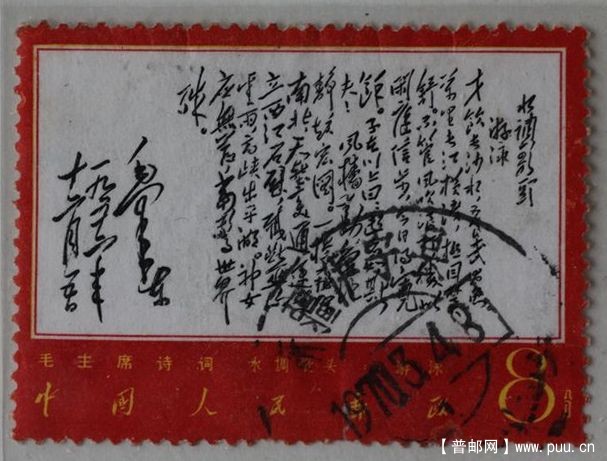 水调歌头
游泳
才饮长沙水，又食武昌鱼。
万里长江横渡，极目楚天
舒。不管风吹浪打，胜似
闲庭信步，今日得宽
馀。子在川上曰：逝者如斯
夫！风樯动，龟蛇
静，起宏图。一桥飞架
南北，天堑变通途。更
立西江石壁，截断巫山
云雨，高峡出平湖。神女
应無恙，当驚世界
殊。
毛泽东
一九五六年
十二月五日
毛主席诗词 水调歌头 游泳
中国人民邮政
8
八分
1970.3.4.8
【普邮网】www.puu.cn